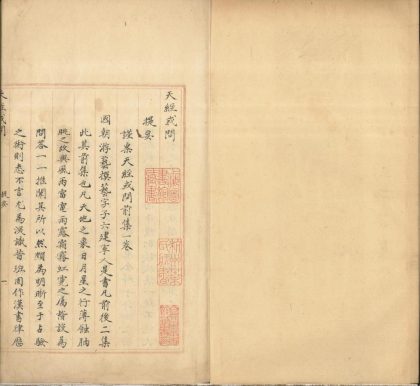 天經或問
提要
謹案天經或問前集一卷
國朝游藝撰藝字子六建寧人是書凡前後二集
此其前集也凡天地之象日月星之行薄蝕朒
朓之故與風雨雷電雨露霜霧虹霓之屬皆設為
問答一一推闡其所以然頗為明晰至于占驗
之術則悉不言尤為深識昔班固作漢書律歷
天經或問
提要
一